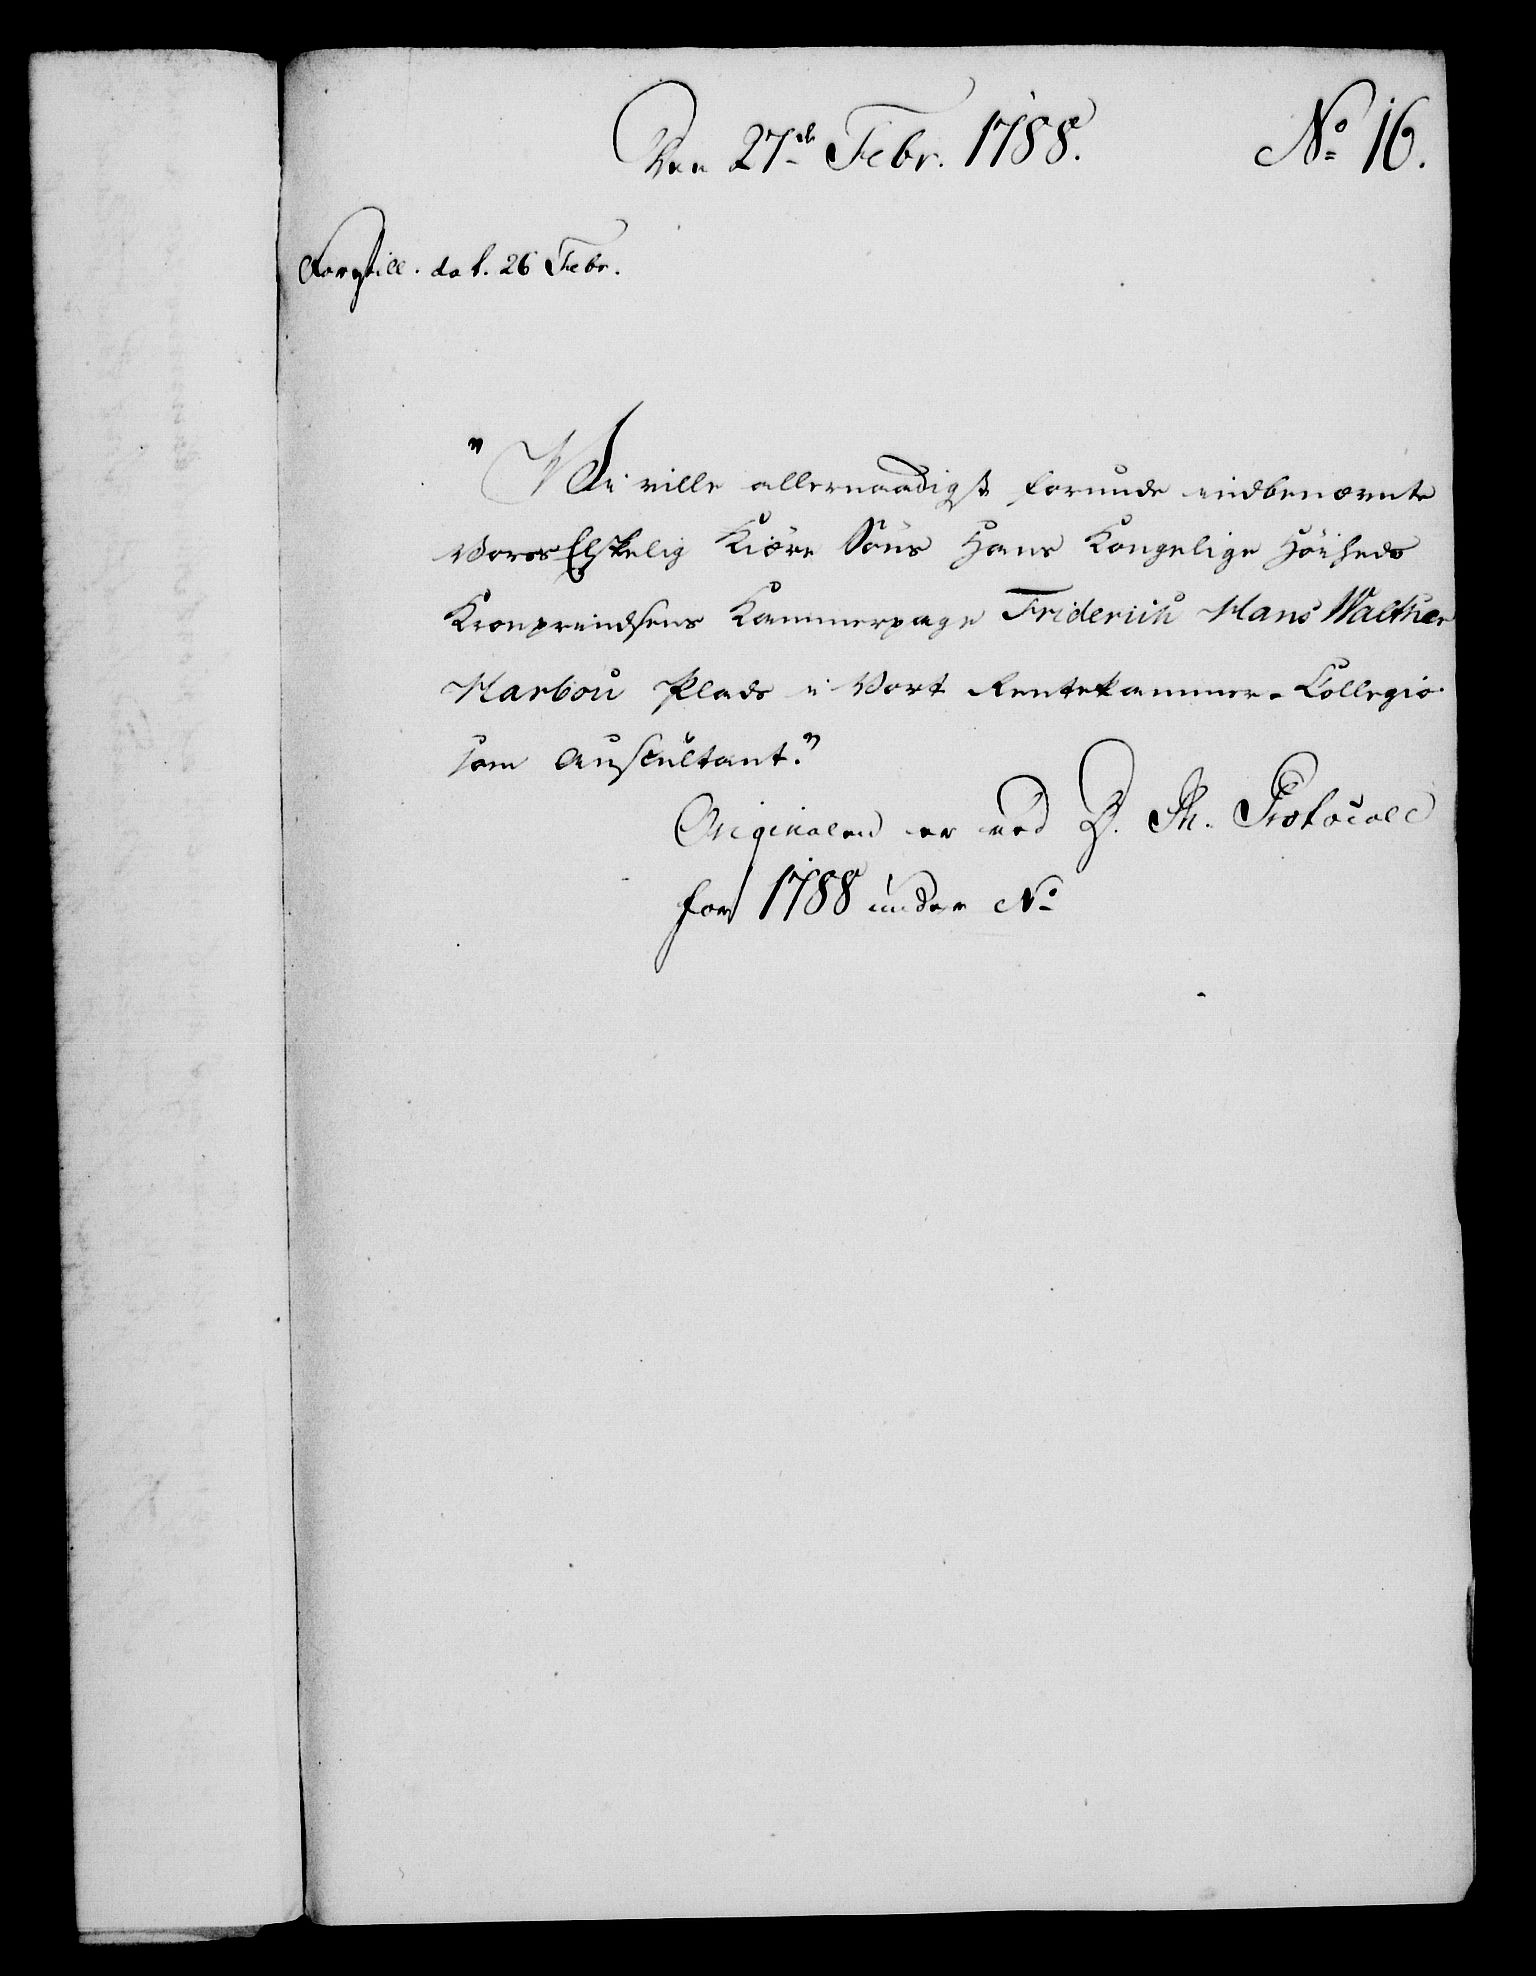 Den 27de Febr. 1788. No 16.
Forestill. dat. 26 Febr.
"Vi ville allernaadigst forunde indbenævnte
Vores Elskelig Kiære Søns Hans Kongelige Høiheds
Kronprindsens Kammerpage Friderich Hans Walther
Harbou Plads i Vort Rentekammer-Collegio
som Auscultant."
Originalen er ved D. Protocoll
for 1788 under No